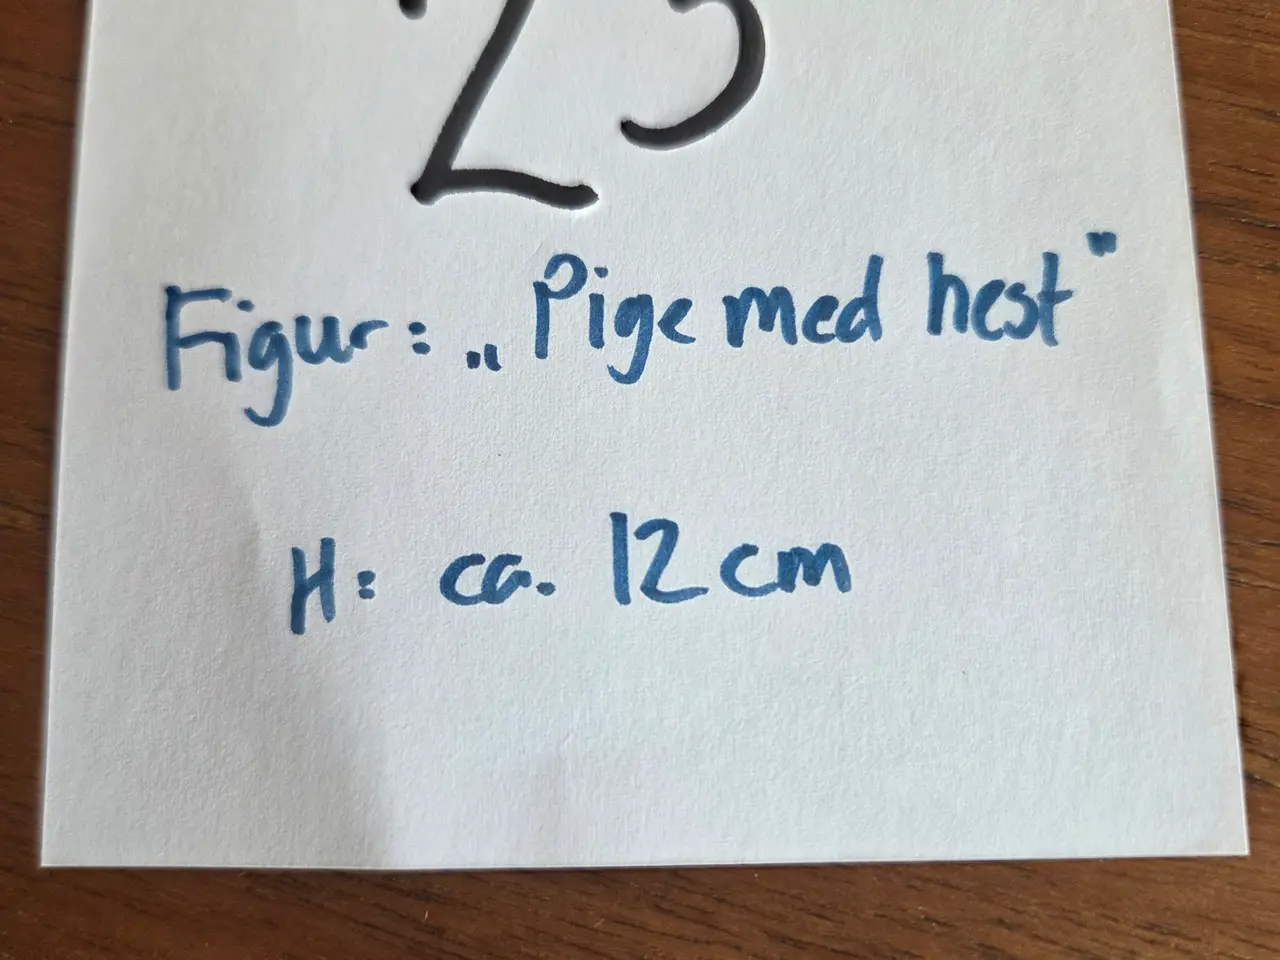 Figur: „Pige med hest"
H: ca. 12 cm